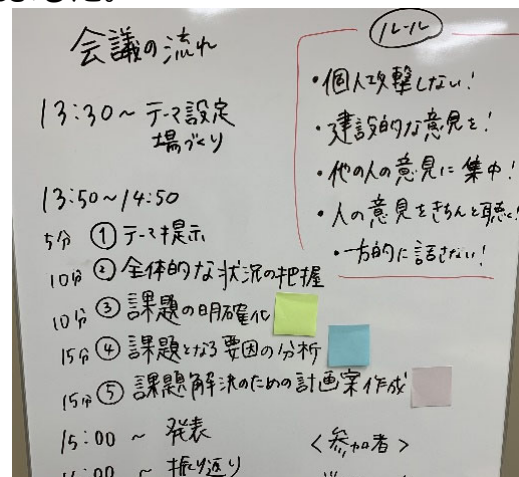 会議の流れ
13:30～ テーマ設定
場づくり
13:50～14:50
5分 ① テーマ提示
10分 ② 全体的な状況の把握
10分 ③ 課題の明確化
15分 ④ 課題となる要因の分析
15分 ⑤ 課題解決のための計画案作成
15:00 ～ 発表
:00 ～ 振り返り
ルール
・個人攻撃しない！
・建設的な意見を！
・他の人の意見に集中！
・人の意見をきちんと聴く！
・一方的に話さない！
＜参加者＞